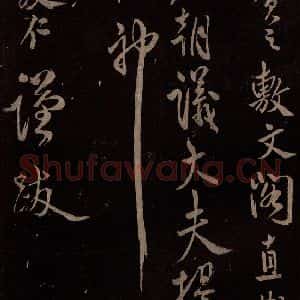 之敷文阁直
朝議大夫提
神
仁謹跋
Shufawang.CN